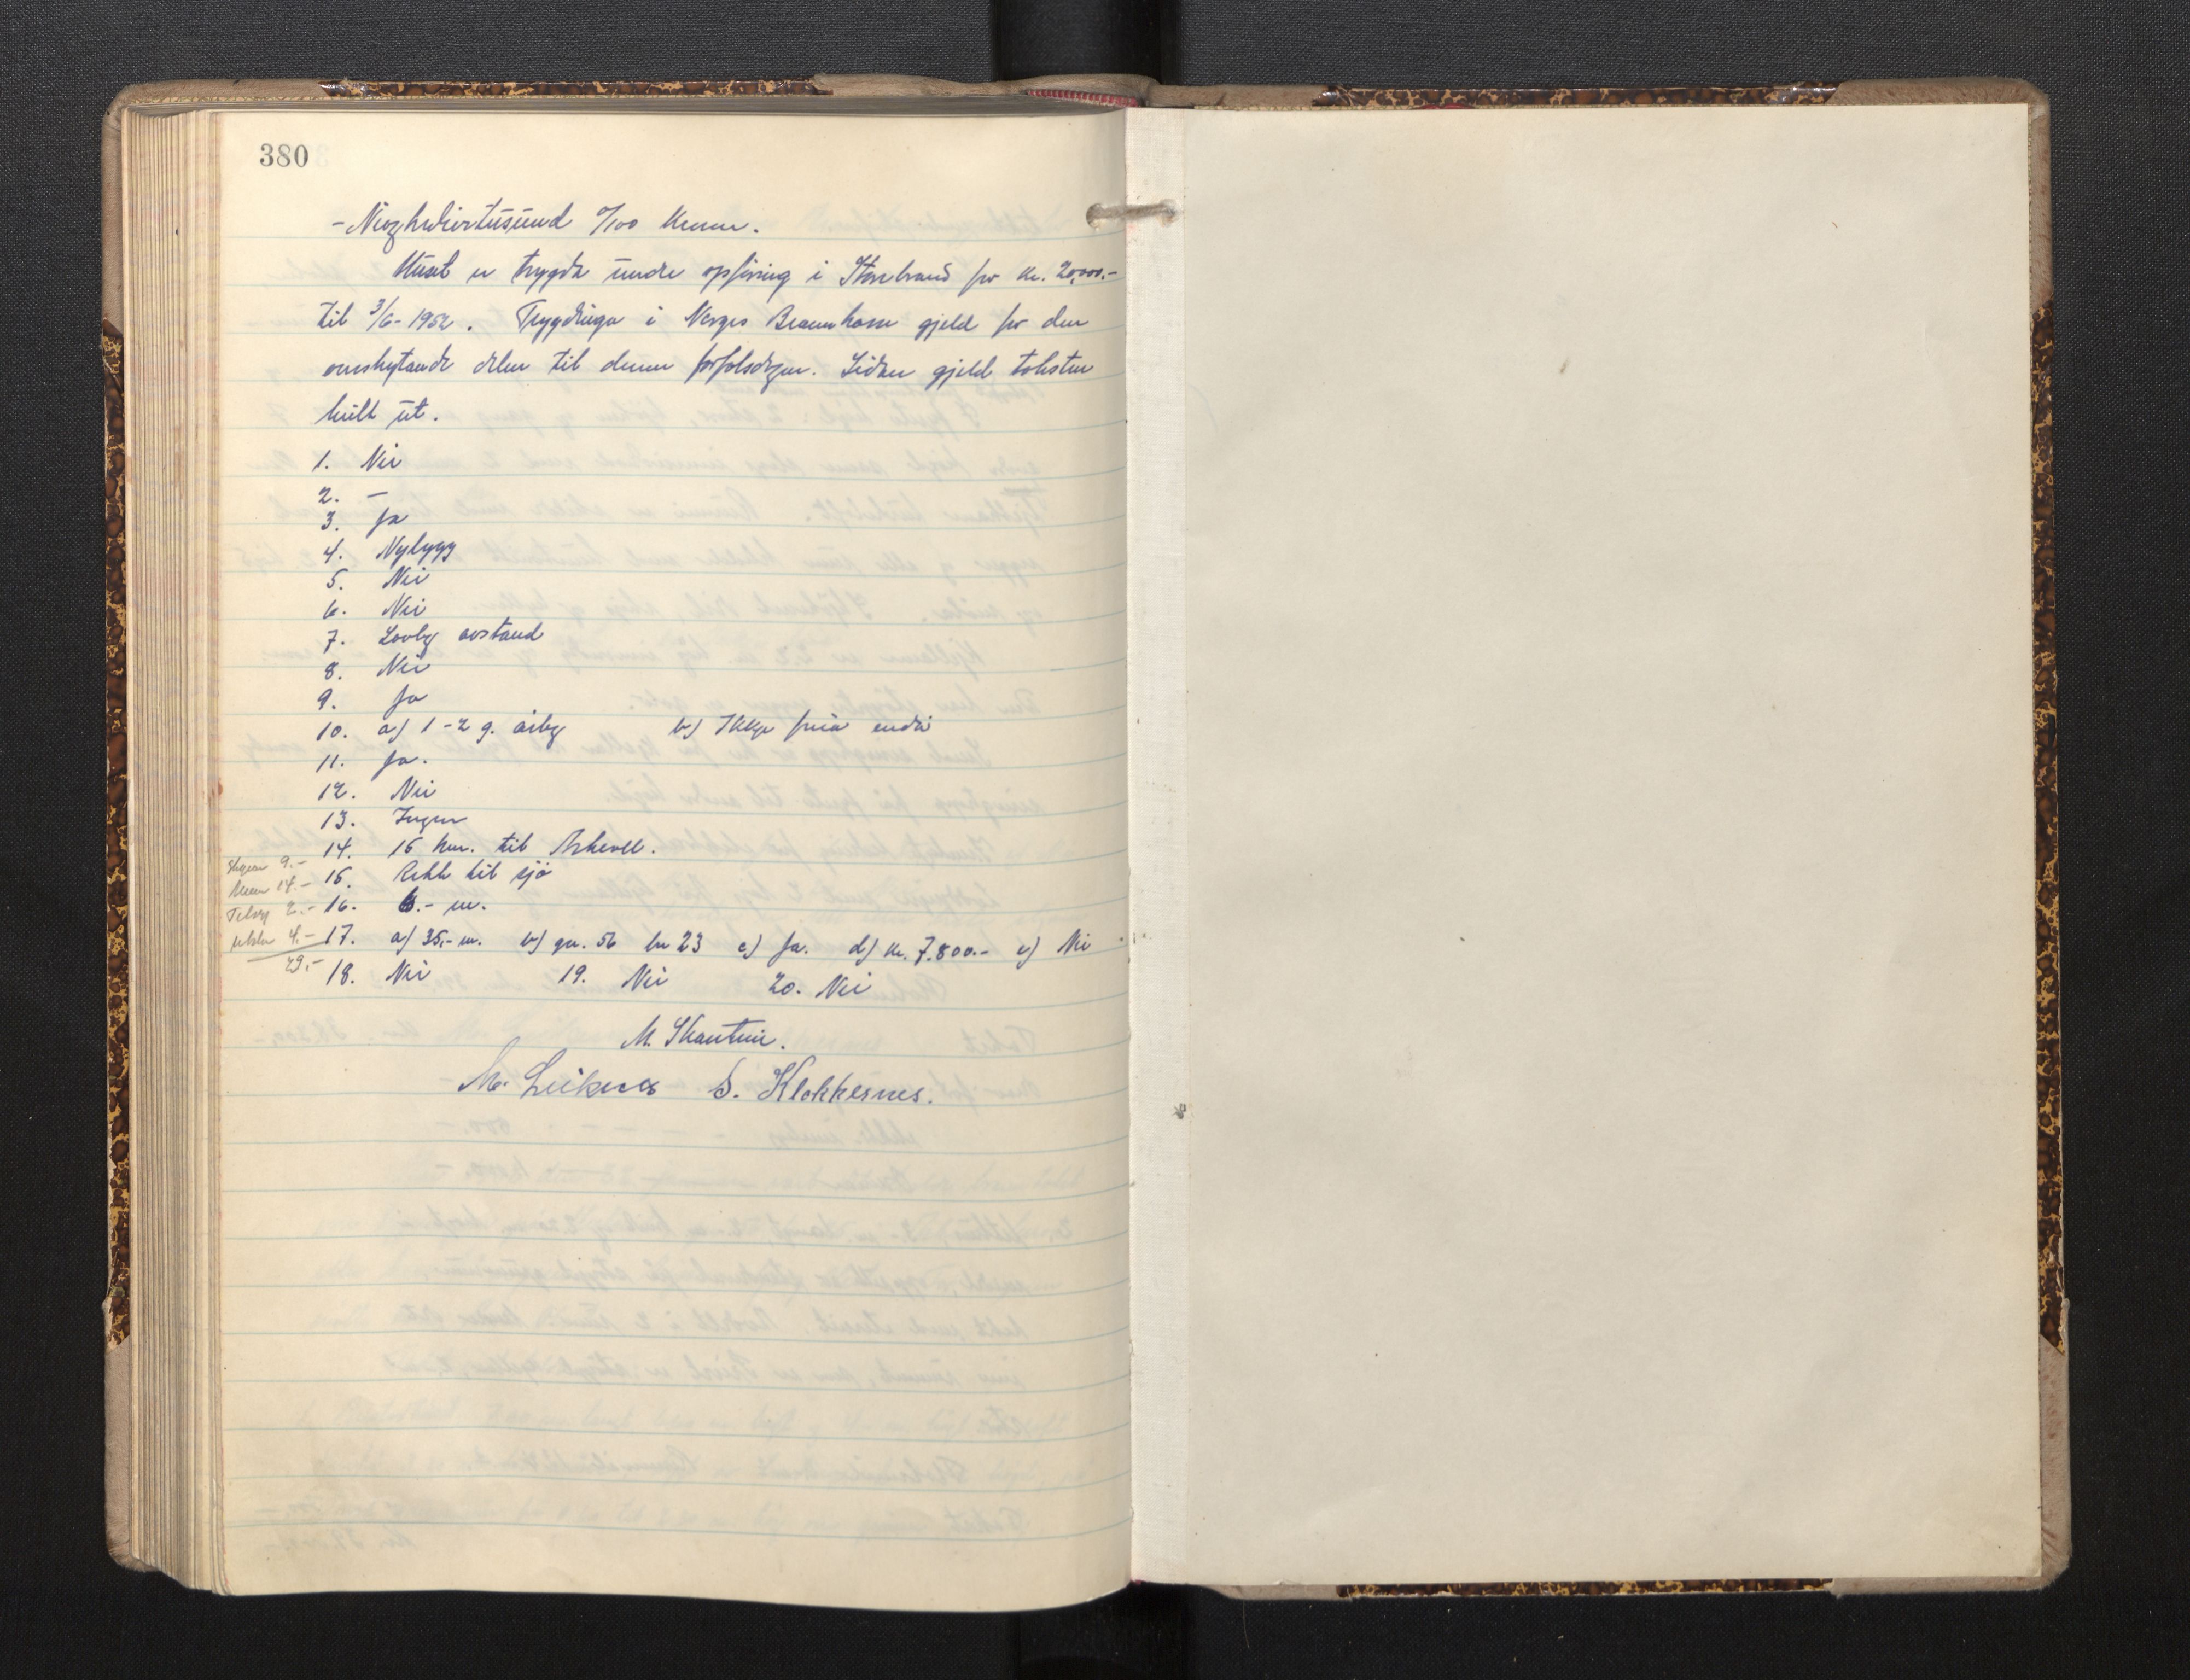 380
- 0/100 Kroner.
Huset er trygda under oppføring i Storebrand for kr. 20,000.-
til 3/6-1952. Trygdinga i Norges Brannkasse gjeld for den
overskytande delen til denne forfalsdagen. Sidan gjeld taksten
heilt ut.
1. Nei
2. -
3. Ja
4. Nybygg
5. Nei
6. Nei
7. Lovleg avstand
8. Nei
9. Ja
10. a) 1-2 g. årleg b) Ikkje endå
11. Ja.
12. Nei
13. Ingen
14. 15 km. til Askvoll.
15. til sjø
16. 6.- m.
17. a) 35,- m. b) gn. 56 bn 23 c) Ja. d) kr. 7.800.- e) Nei
18. Nei 19. Nei 20. Nei
Skyss 9.-
Menn 14.-
2.-
4.-
29,-
M.
M. S. Klokkernes.